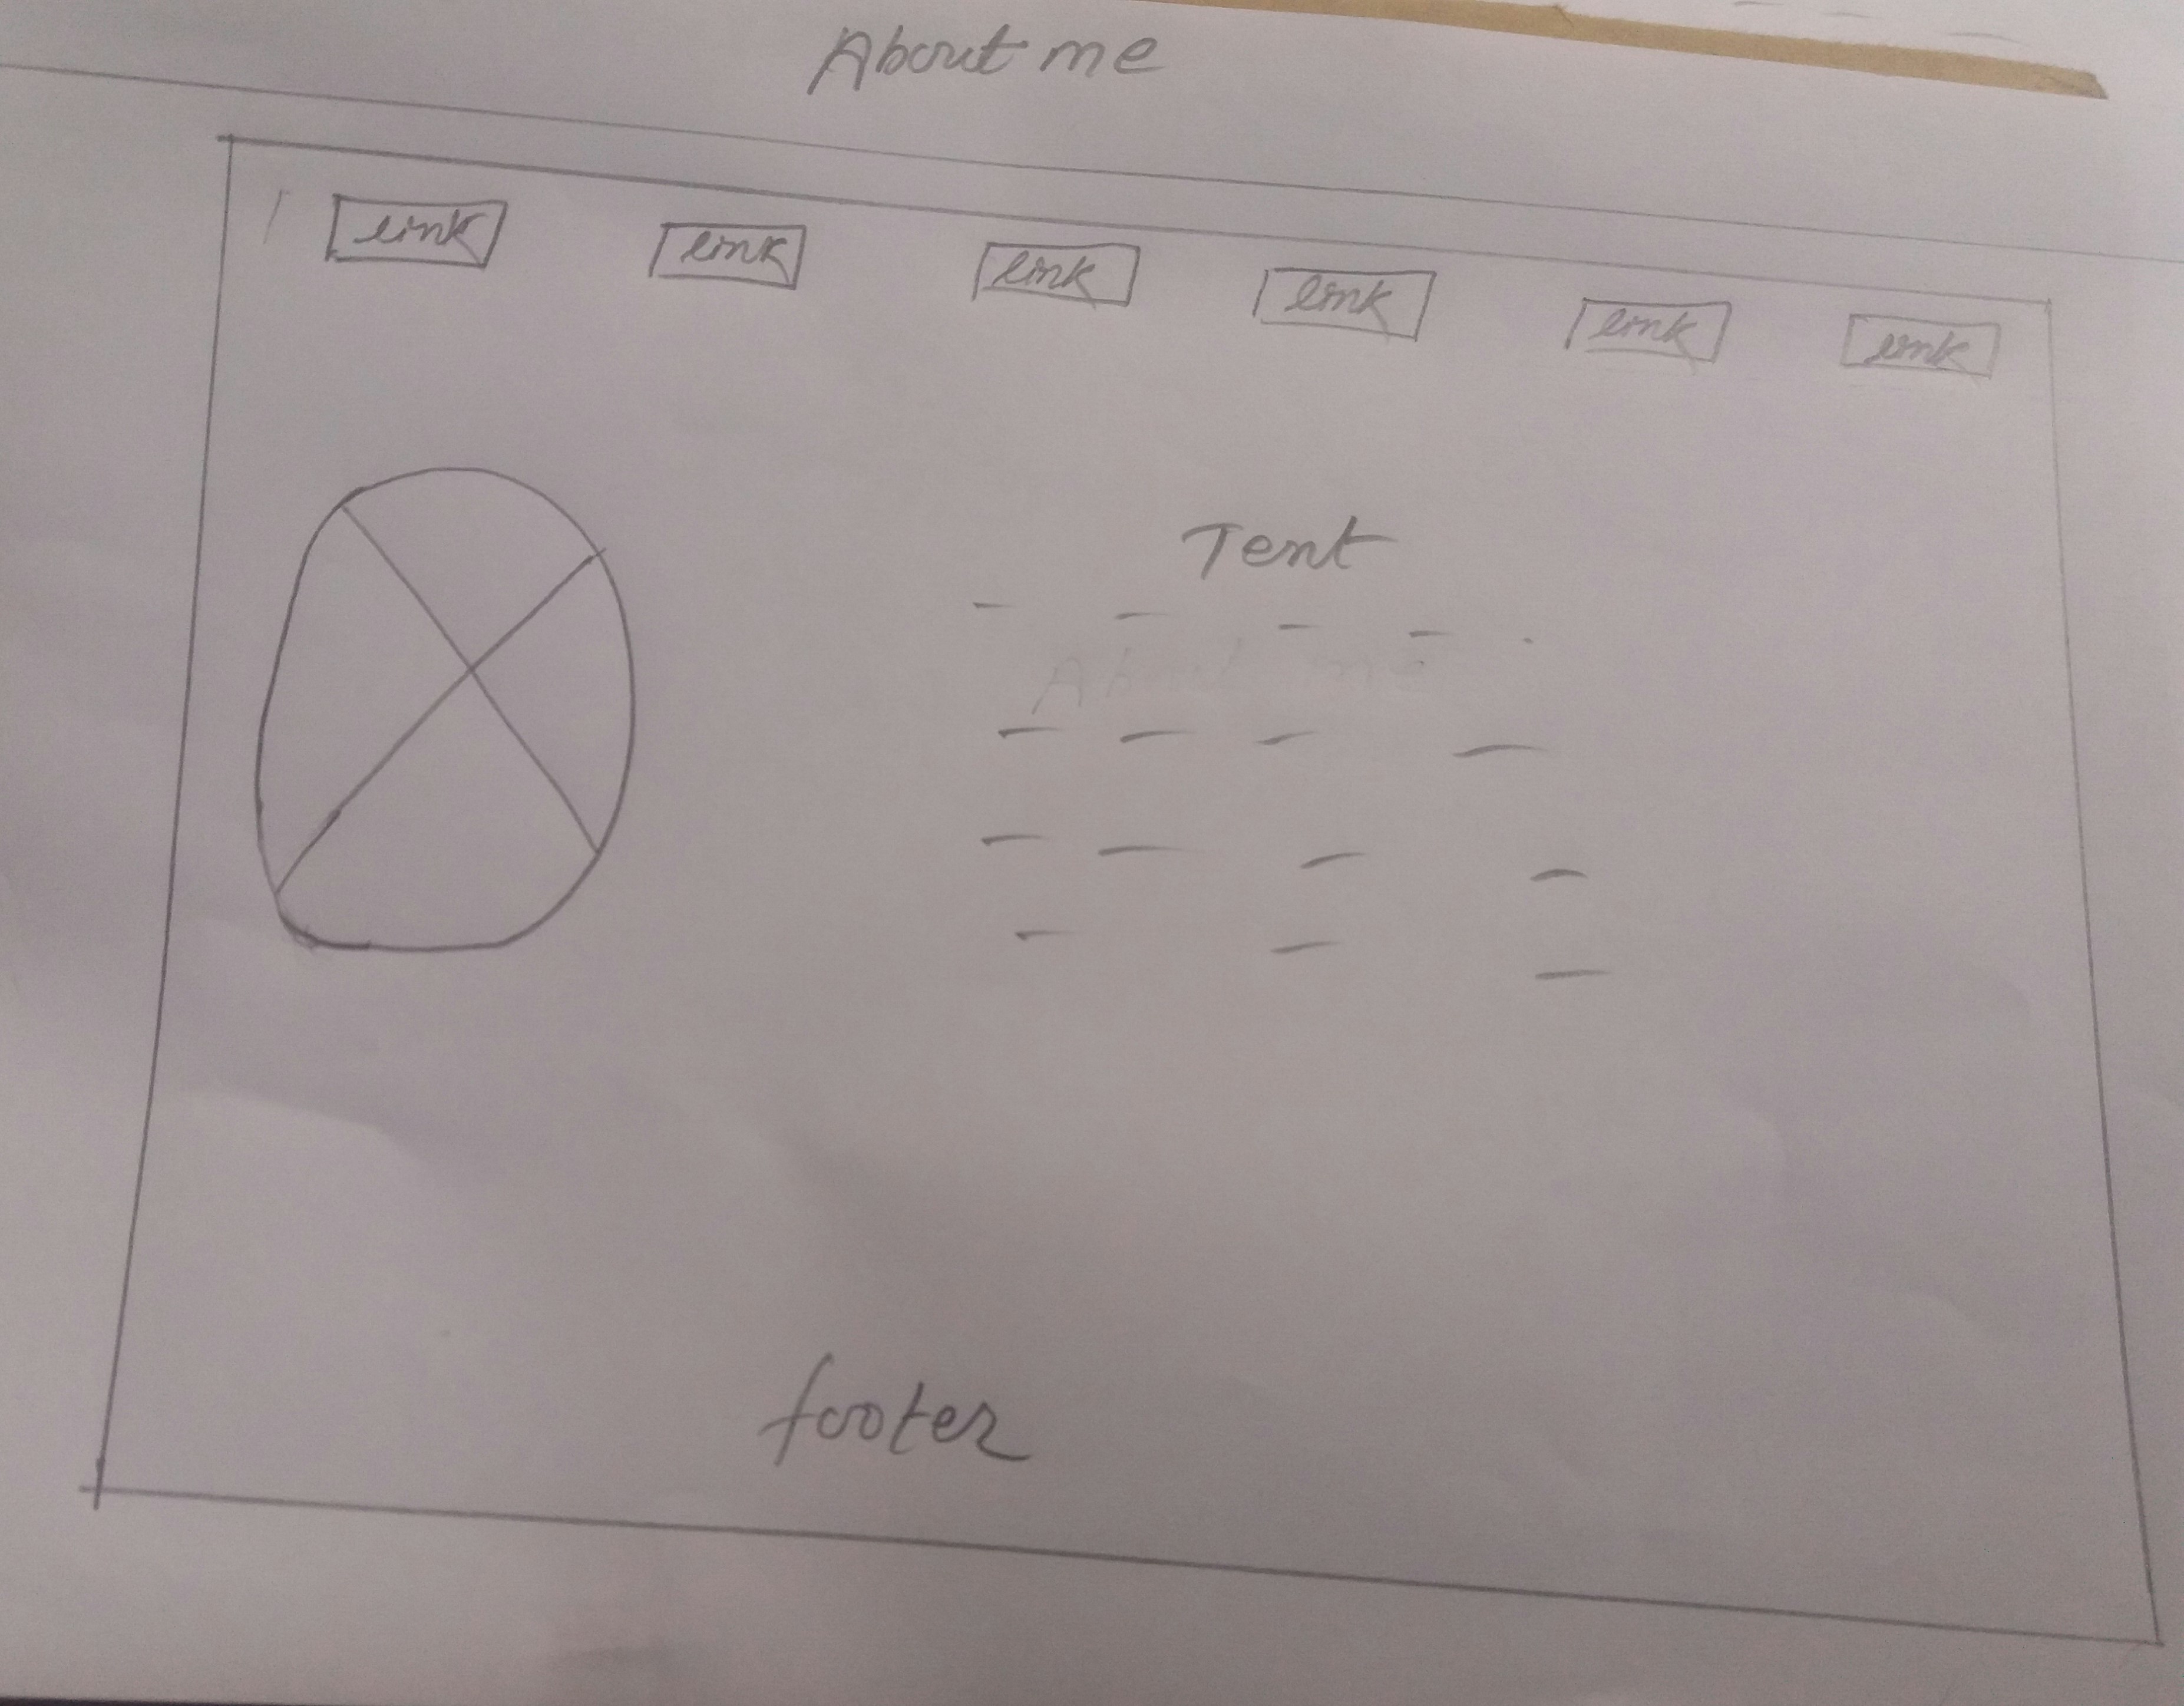 About me
link link link link link link
Text
About me
footer